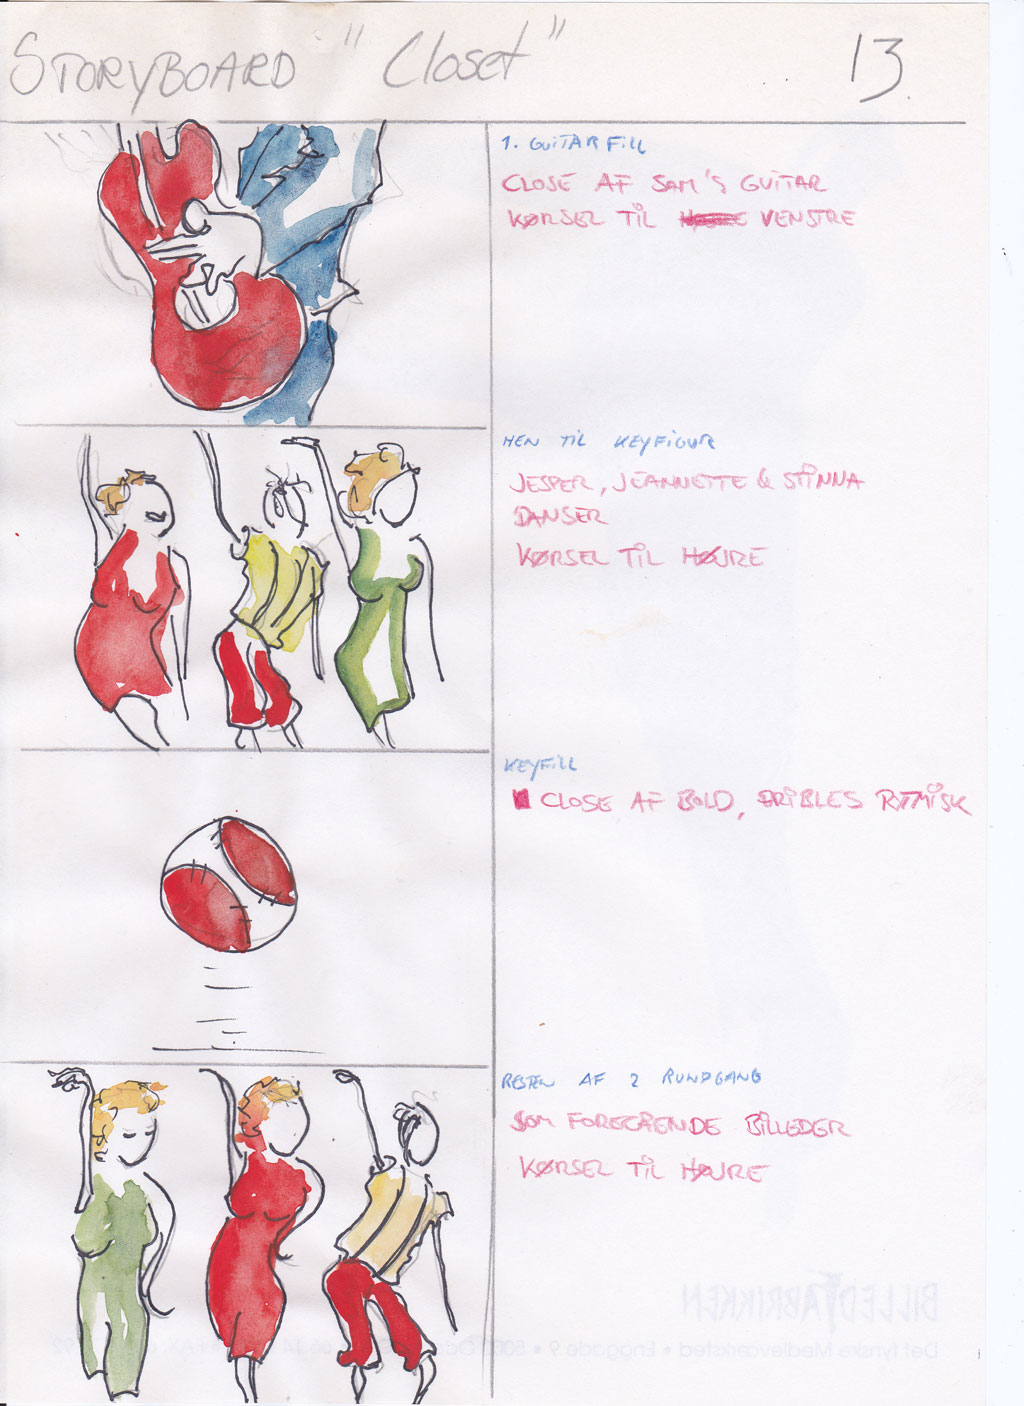 STORYBOARD "Closet" 13.
1. GUITARFILL
CLOSE AF SAM'S GUITAR
KØRSEL TIL VENSTRE
HEN TIL KEYFIGUR
JESPER, JEANNETTE & STINNA
DANSER
KØRSEL TIL HØJRE
KEYFILL
CLOSE AF BOLD, DRIBLES RYTMISK
RESTEN AF 2 RUNDGANG
SOM FOREGÅENDE BILLEDER
KØRSEL TIL HØJRE
BILLEDFABRIKKEN
Det fynske Medieværksted • Enggade 9 • 5000